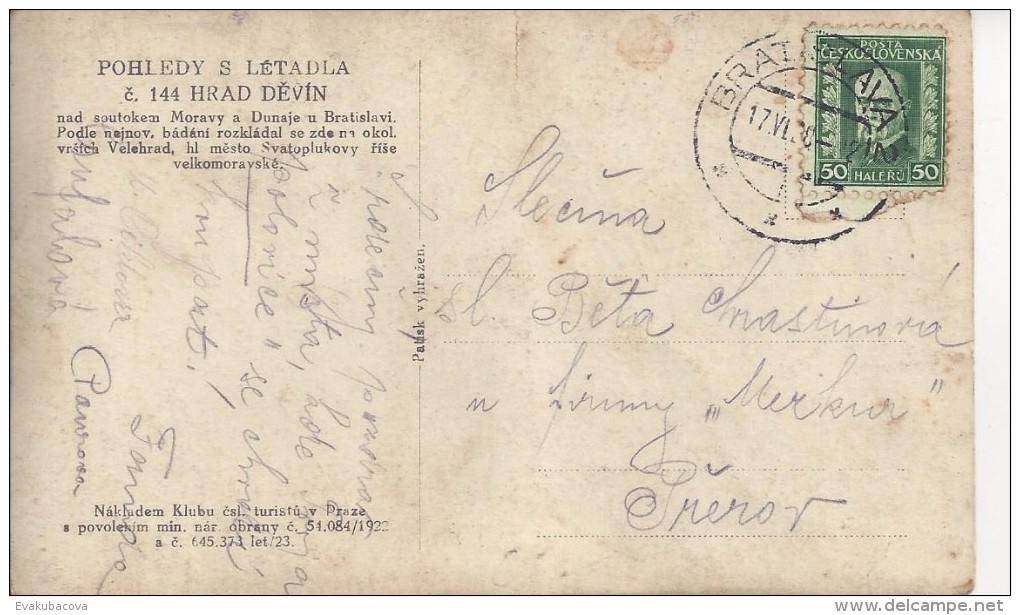 POHLEDY S LETADLA
č. 144 HRAD DĚVÍN
nad soutokem Moravy a Dunaje u Bratislavi.
Podle nejnov. bádání rozkládal se zde na okol.
vrších Velehrad, hl město Svatoplukovy říše
velkomoravské.
Srdečný pozdrav
z místa, kde
se
Fanda
Nákladem Klubu čsl. turistů v Praze
s povolením min. nár. obrany č. 51.084/1922
a č. 645.373 let/23.
Patisk vyhražen.
BRATISLAVA
17.VI.
POSTA
ČESKOSLOVENSKÁ
50 HALÉŘŮ 50
Slečna
sl. Běta
u firmy „Merkur"
Přerov
Evakubacova
delcampe.net